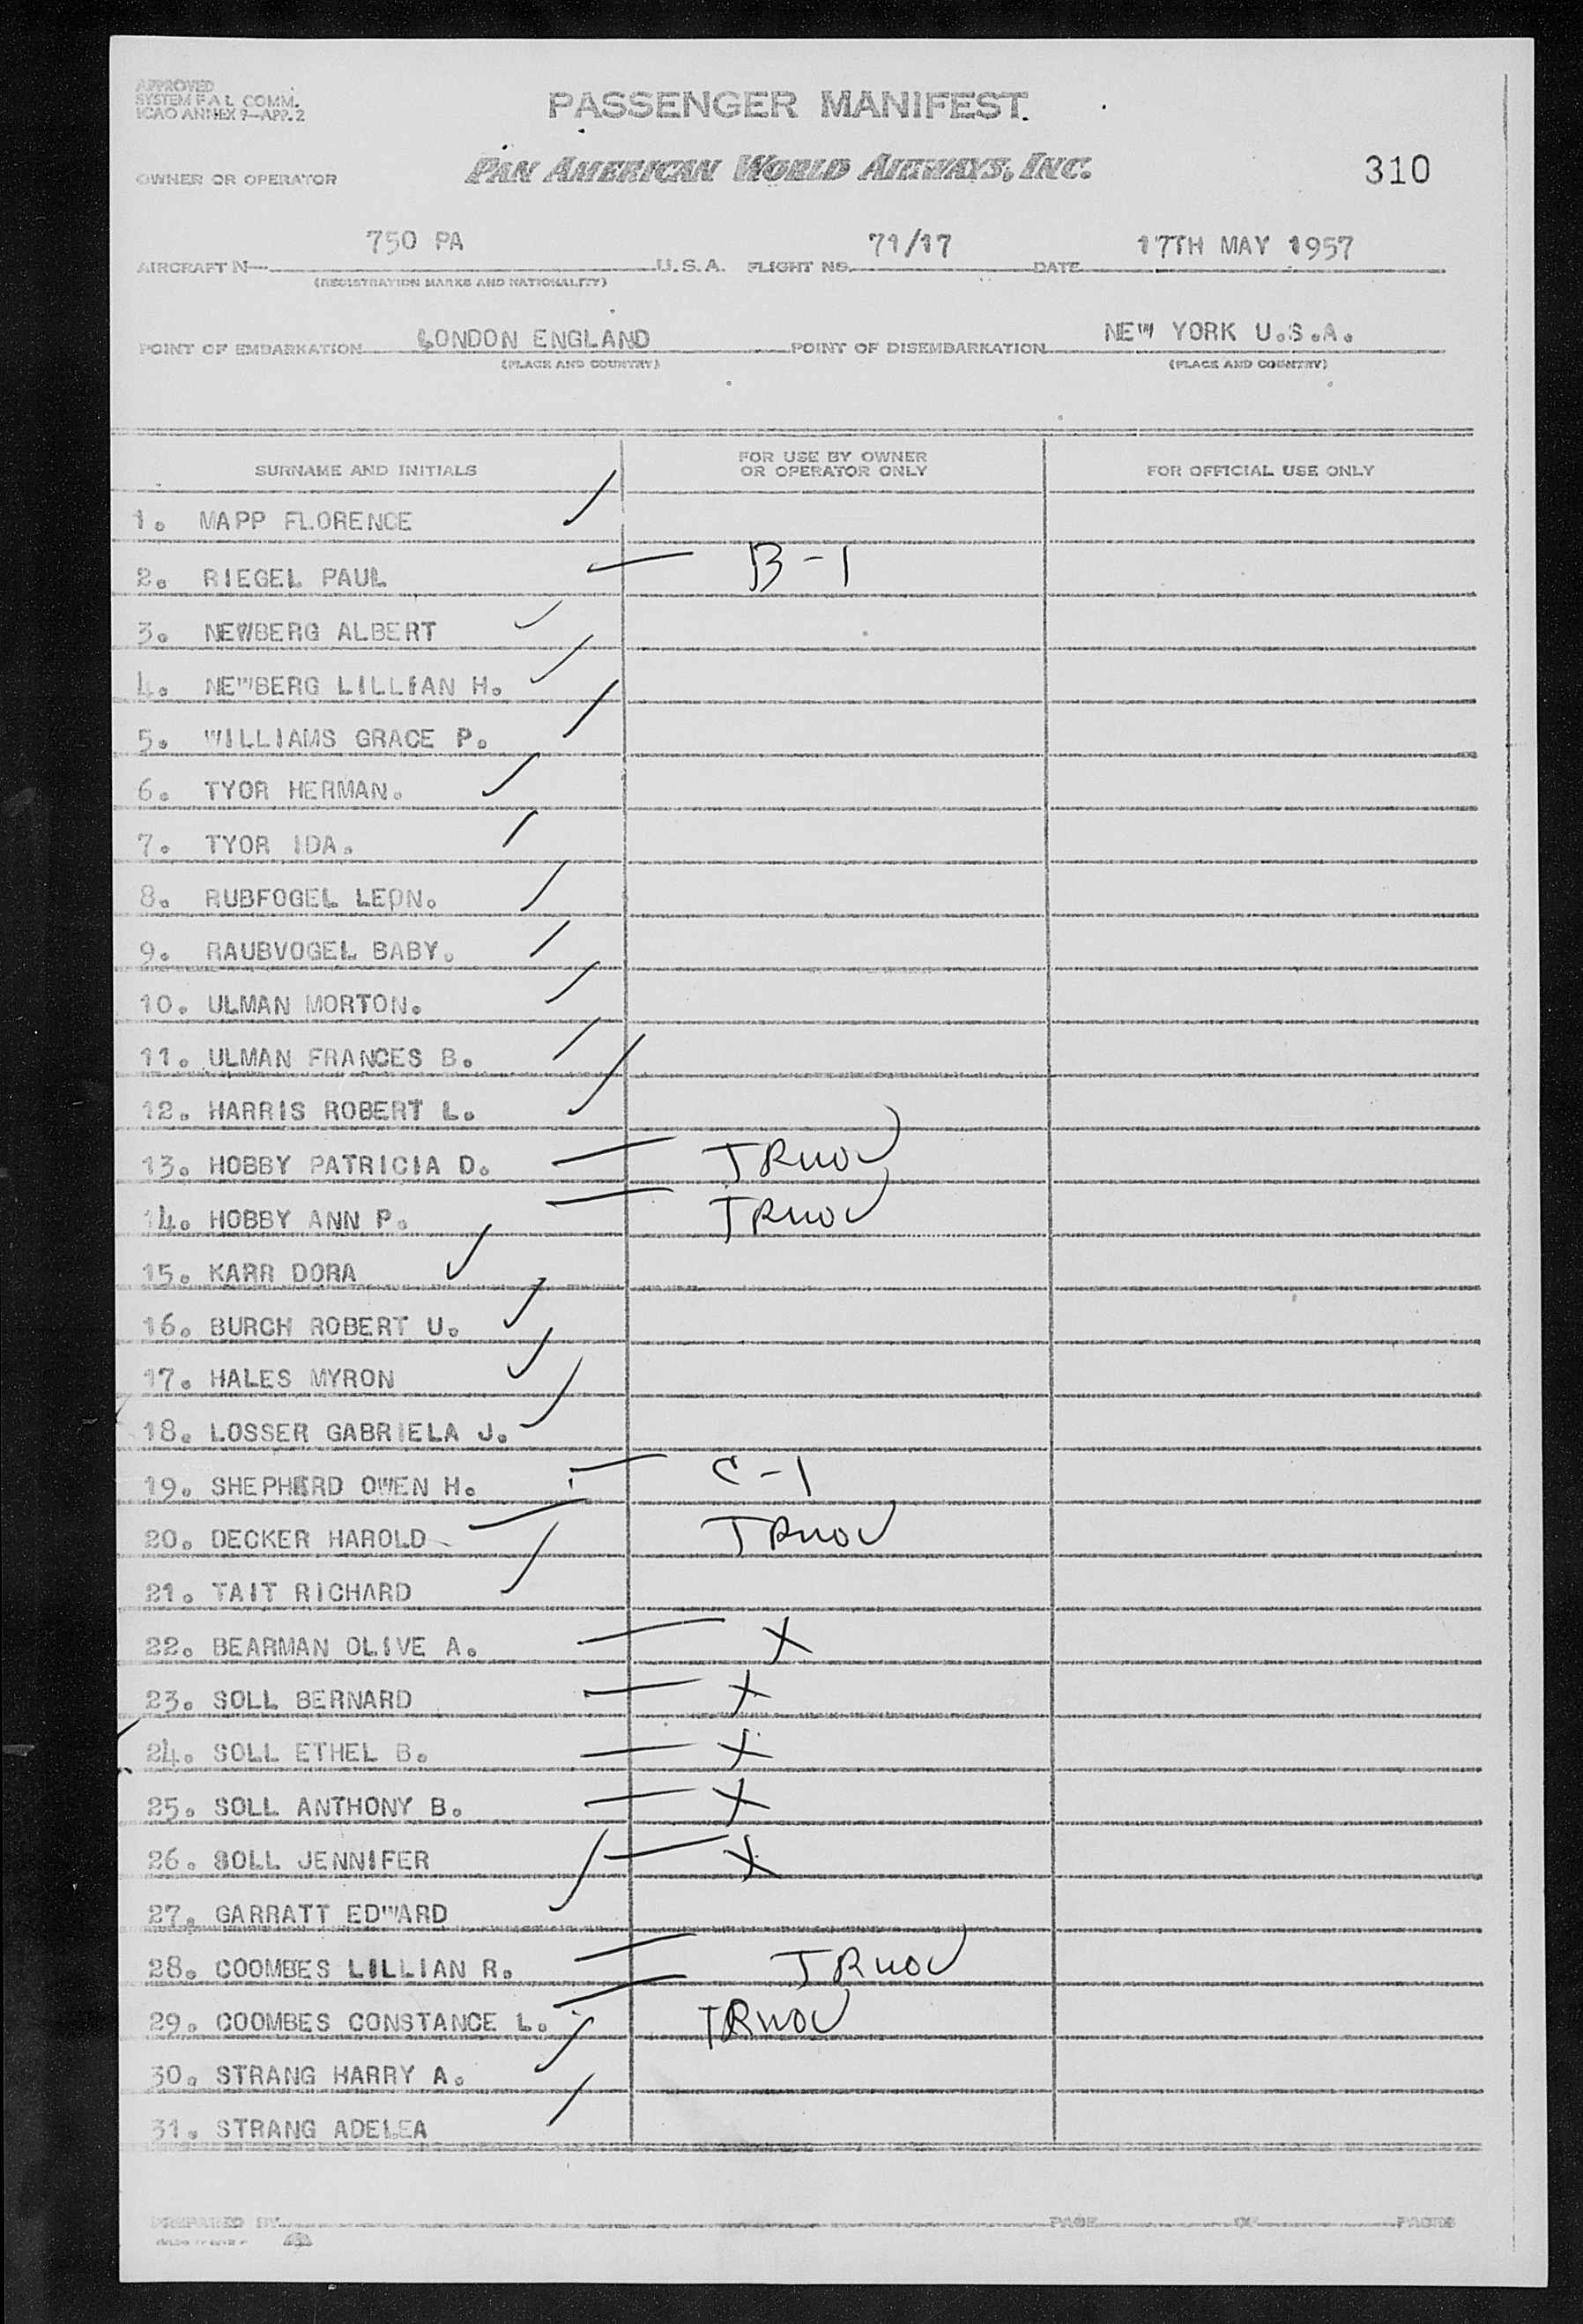 APPROVED
SYSTEM F A L COMM.
ICAO ANNEX 9—APP. 2
PASSENGER MANIFEST
OWNER OR OPERATOR
PAN AMERICAN WORLD AIRWAYS, INC.
310
AIRCRAFT N— 750 PA U.S.A. FLIGHT NO. 71/17 DATE 17TH MAY 1957
(REGISTRATION MARKS AND NATIONALITY)
POINT OF EMBARKATION LONDON ENGLAND POINT OF DISEMBARKATION NEW YORK U.S.A.
(PLACE AND COUNTRY) (PLACE AND COUNTRY)
SURNAME AND INITIALS FOR USE BY OWNER OR OPERATOR ONLY FOR OFFICIAL USE ONLY
1. MAPP FLORENCE
2. RIEGEL PAUL B-1
3. NEWBERG ALBERT
4. NEWBERG LILLIAN H.
5. WILLIAMS GRACE P.
6. TYOR HERMAN.
7. TYOR IDA.
8. RUBFOGEL LEON.
9. RAUBVOGEL BABY.
10. ULMAN MORTON.
11. ULMAN FRANCES B.
12. HARRIS ROBERT L.
13. HOBBY PATRICIA D. TRWOV
14. HOBBY ANN P. TRWOV
15. KARR DORA
16. BURCH ROBERT U.
17. HALES MYRON
18. LOSSER GABRIELA J.
19. SHEPHERD OWEN H. C-1
20. DECKER HAROLD TRWOV
21. TAIT RICHARD
22. BEARMAN OLIVE A. X
23. SOLL BERNARD X
24. SOLL ETHEL B. X
25. SOLL ANTHONY B. X
26. SOLL JENNIFER X
27. GARRATT EDWARD
28. COOMBES LILLIAN R. TRWOV
29. COOMBES CONSTANCE L. TRWOV
30. STRANG HARRY A.
31. STRANG ADELEA
PREPARED BY PAGE OF PAGES